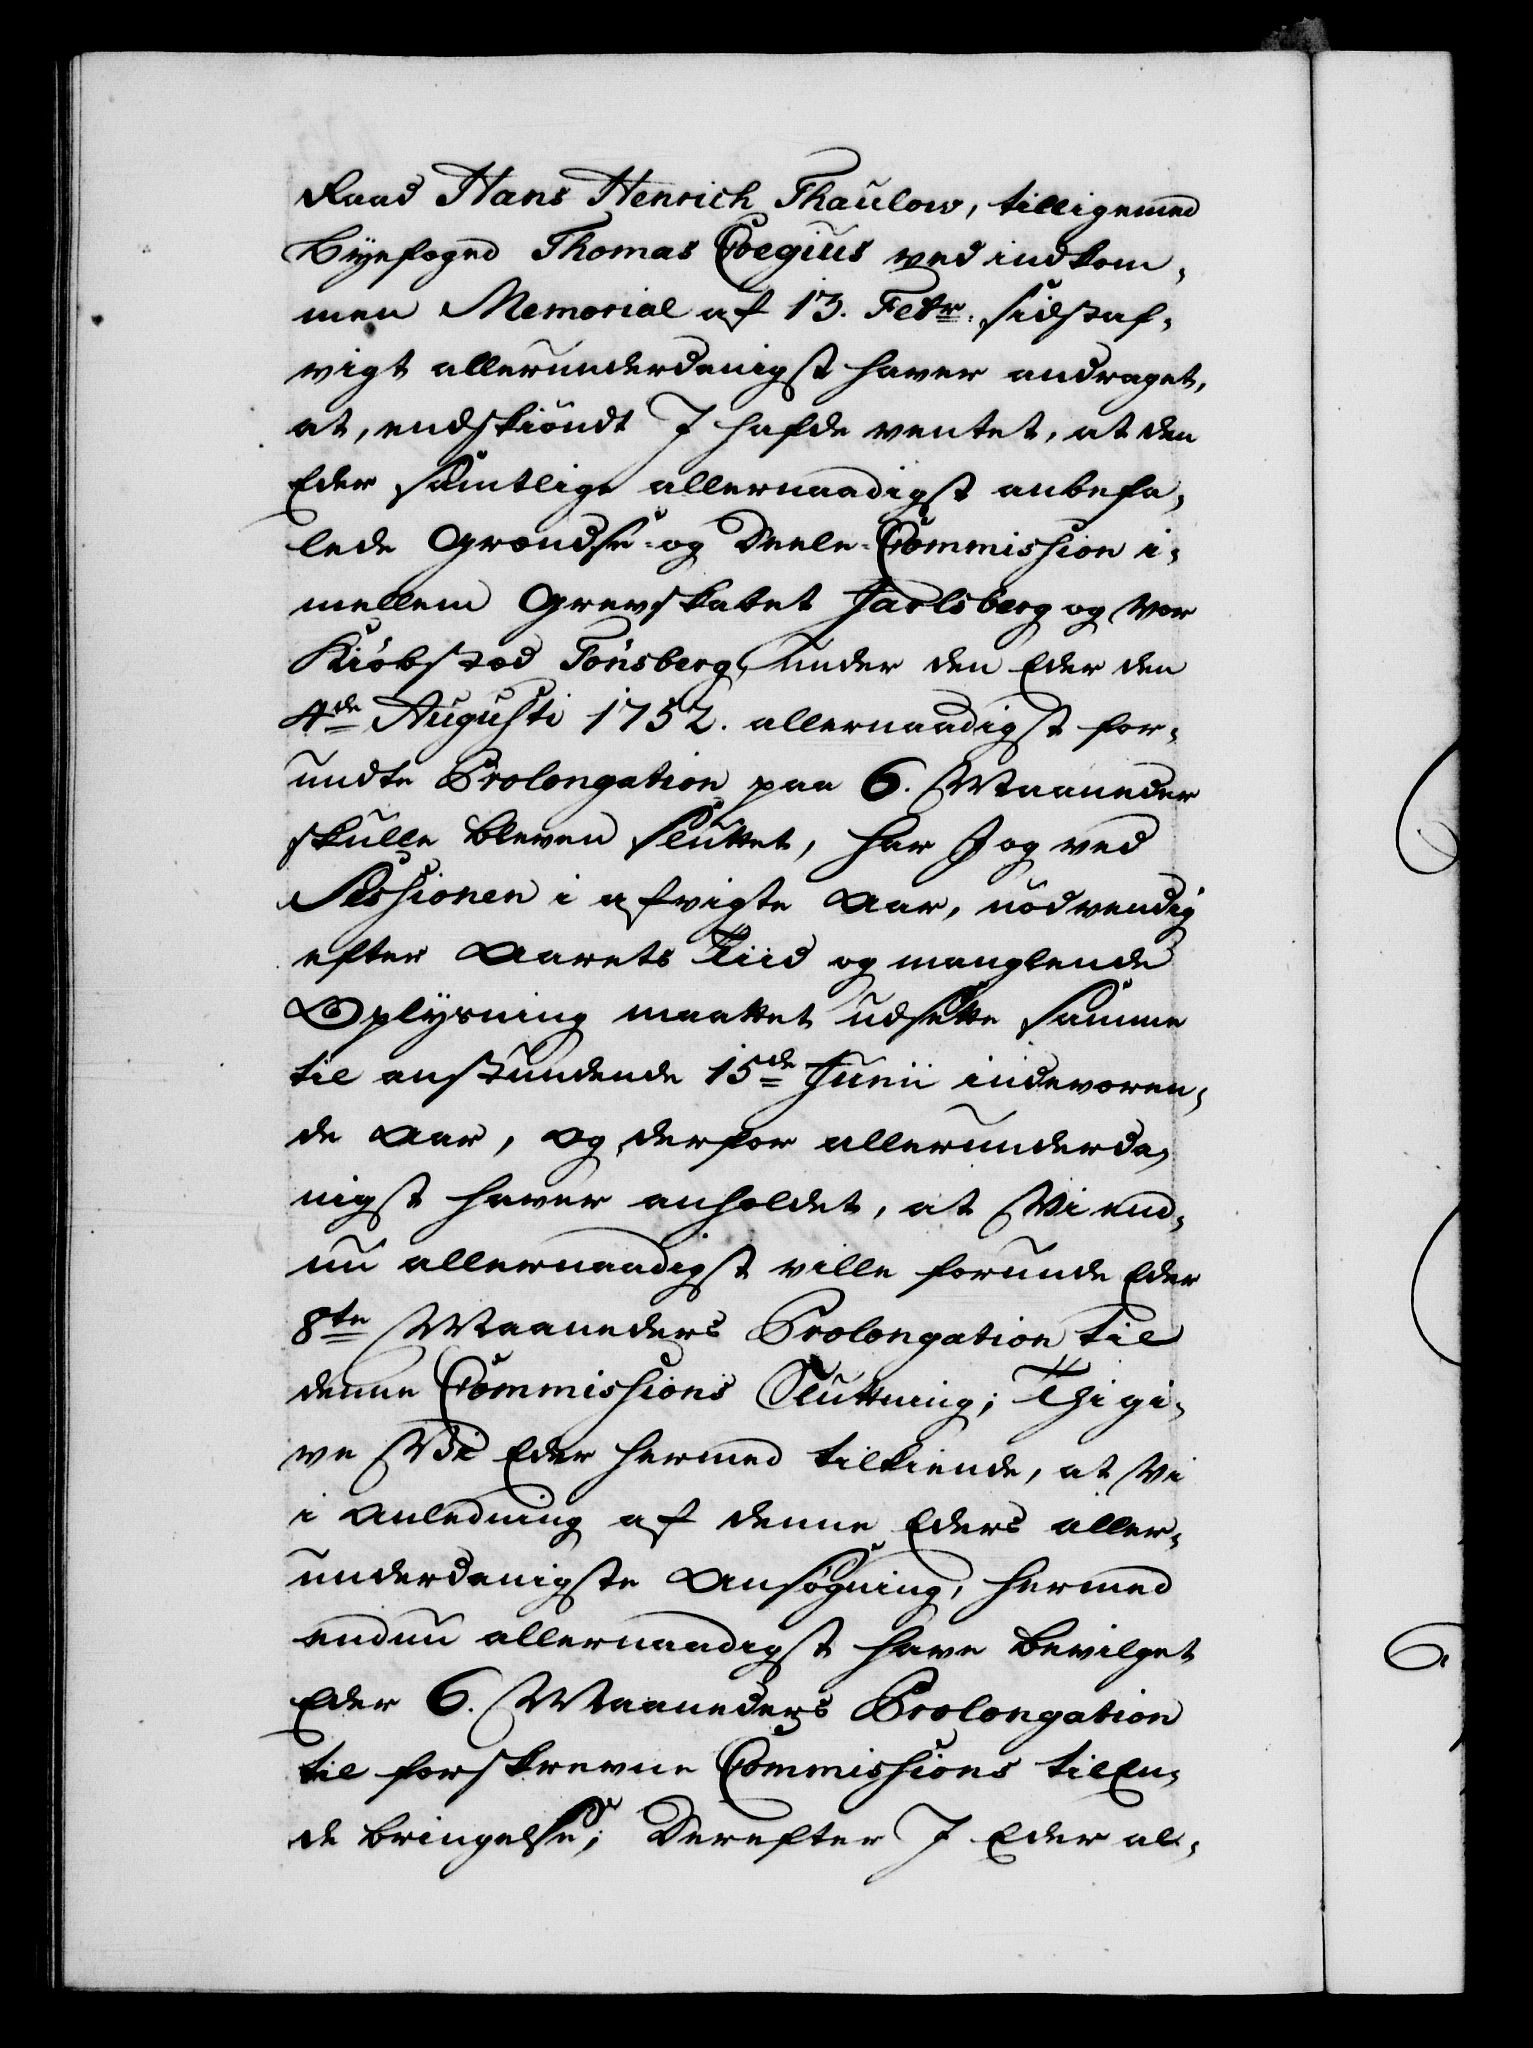 Raad Hans Henrich Thaulow, tilligemed
Byefoged Thomas Coegius ved indkom-
men Memorial af 13. Febr. sidstaf-
vigt allerunderdanigst haver andraget,
at, endskiöndt I hafde ventet, at den
Eder samtlige allernaadigst anbefa-
lede Grændse- og Deele-Commission i-
mellem Grevskabet Jarlsberg og Vor
Kiöbstæd Tönsberg, under den Eder den
4de Augusti 1752. allernaadigst for-
undte Prolongation paa 6. Maaneder
skulle bleven sluttet, har I og ved
Sessionen i afvigte Aar, nödvendig
efter Aarets Tiid og manglende
Oplysning maattet udsætte samme
til anstundende 15de Junii indeværen-
de Aar, og derfor allerunderda-
nigst haver anholdet, at Vi end-
nu allernaadigst ville forunde Eder
8te Maaneders Prolongation til
denne Commissions Sluttning; Thi gi-
ve Vi Eder hermed tilkiende, at Vi
i Anledning af denne Eders aller-
underdanigste Ansögning, hermed
endnu allernaadigst have bevilget
Eder 6. Maaneders Prolongation
til forskrevne Commissions tilEn-
de bringelse; Derefter I Eder al-